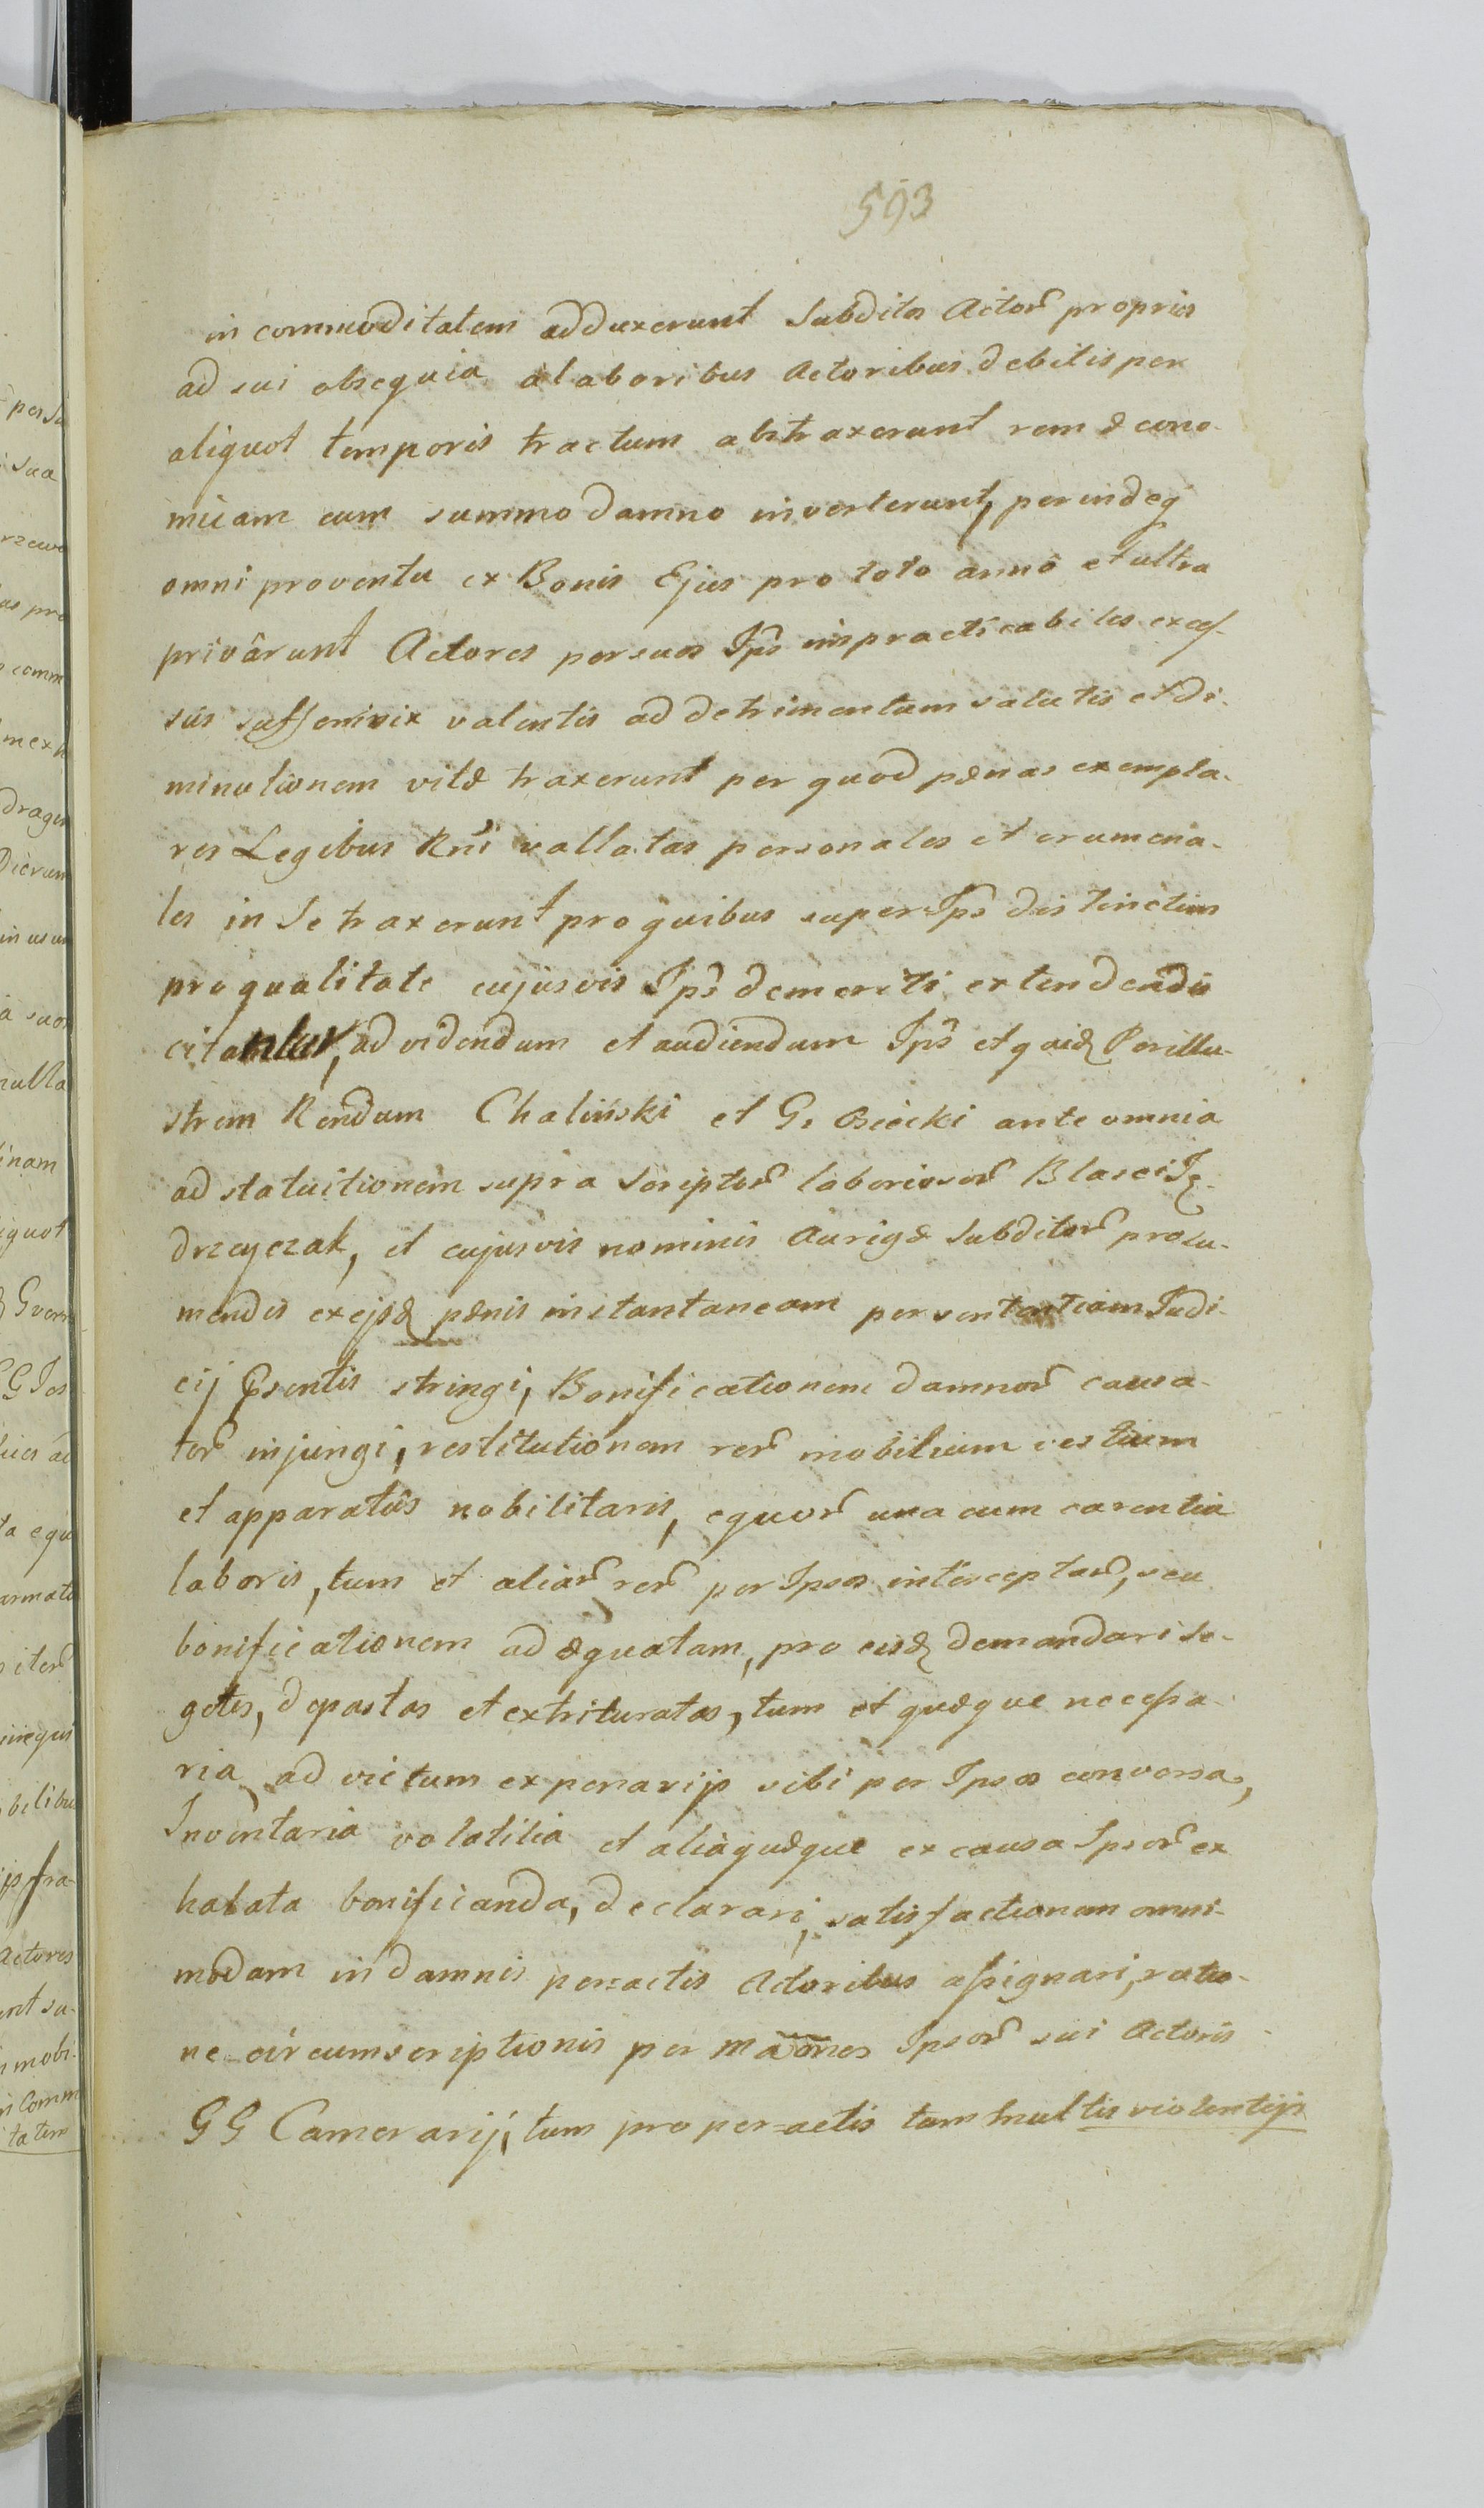 593
in commoditatem adduxerunt Subditos Actor̃ proprios
ad sui obsequia a laboribus Actoribus debitis per
aliquot temporis tractum abstraxerunt rem æcono-
miam cum summo damno inverterunt, perindeq
omni proventu ex Bonis Ejus pro toto annô et ultra
privârunt Actores per suos Ips̃ impracticabiles exces-
sus valentis ad detrimentum salutis et di-
minutionem vitæ traxerunt per quod pænas exempla-
res Legibus Rñi vallatas personales et crumena-
les in se traxerunt pro quibus super Ips̃ distinctim
pro qualitate cujusvis Ips̃ demeriti extendendis
citantur, ad videndum et audiendum Ips̃ et quidȝ Perillu-
strem Rendum Chaliński et G. Osiecki ante omnia
ad statuitionem supra scriptor̃ laboriosor̃ Blasci Ję-
drzeyczak, et cujusvis nominis Aurigæ Subditor̃ prosu-
mendis ex ejsdȝ pænis instantaneam per sententiam Judi-
cij Pr̃sentis stringi, Bonificationem damnor̃ causa-
tor̃ injungi, restitutionem rer̃ mobilium vestium
et apparatûs nobilitaris, equor̃ una cum carentia
laboris, tum et aliar̃ rer̃ per Ipsos interceptar̃, seu
bonificationem adæquatam, pro eisdȝ demandari se-
getes, depastas et extrituratas, tum et quæque necessa-
ria ad victum ex penarijs sibi per Ipsos conversa,
Inventaria volatilia et alia quæque ex causa Ipsor̃ ex
halata bonificanda, declarari, satisfactionem omni-
modam in damnis per=actis Actoribus assignari, ratio-
ne circumscriptionis per Ipsor̃ sui Actoris
GG Camerarij, tum pro per=actis tam multis violentijs